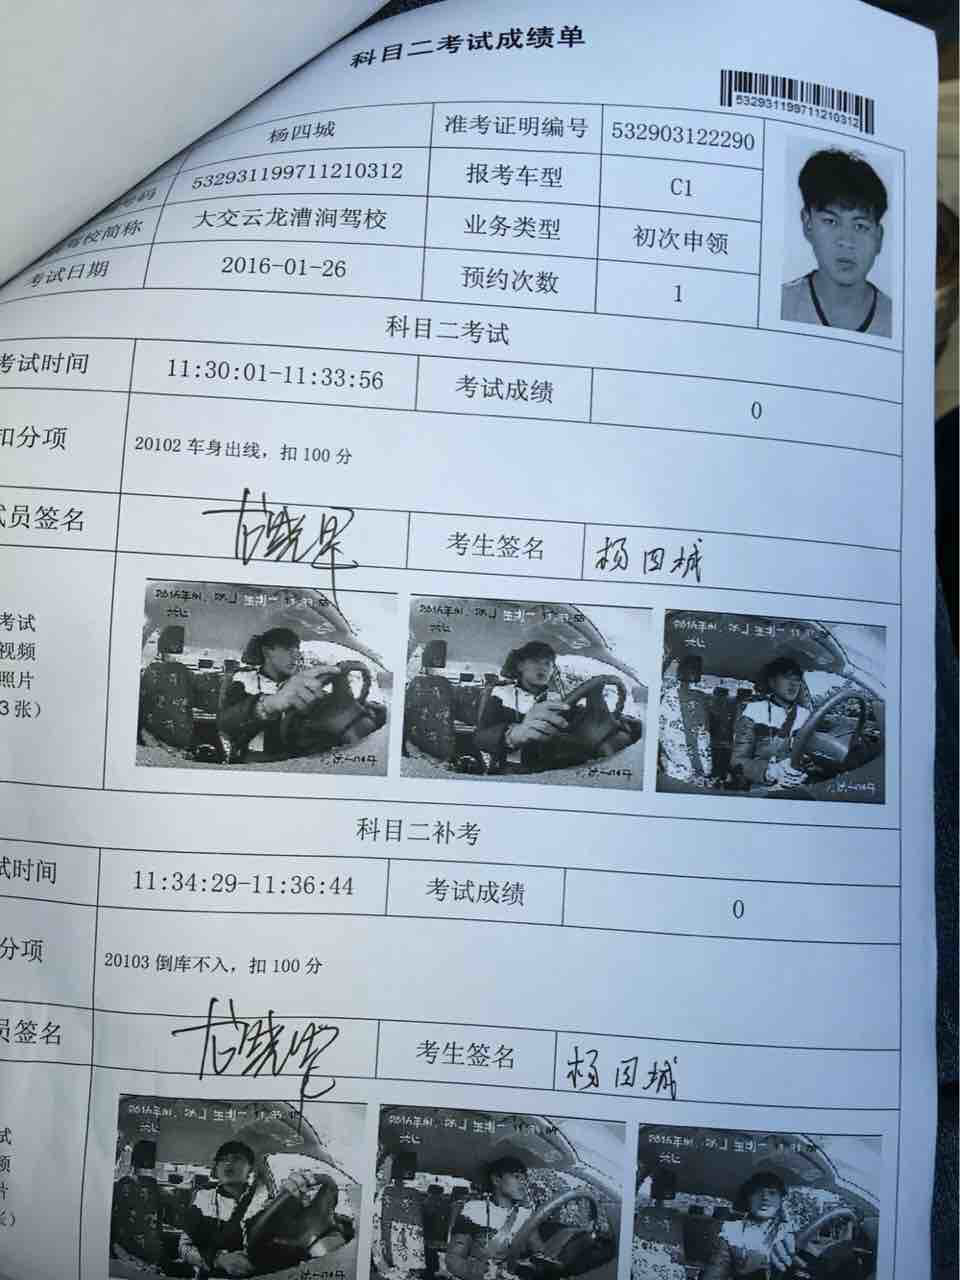 科目二考试成绩单
532931199711210312
杨四城 准考证明编号 532903122290
号码 532931199711210312 报考车型 C1
驾校简称 大交云龙漕涧驾校 业务类型 初次申领
考试日期 2016-01-26 预约次数 1
科目二考试
考试时间 11:30:01-11:33:56 考试成绩 0
扣分项 20102 车身出线，扣 100 分
试员签名 考生签名 杨四城
考试
视频
照片
3 张）
科目二补考
试时间 11:34:29-11:36:44 考试成绩 0
分项 20103 倒库不入，扣 100 分
员签名 考生签名 杨四城
试
频
片
张）